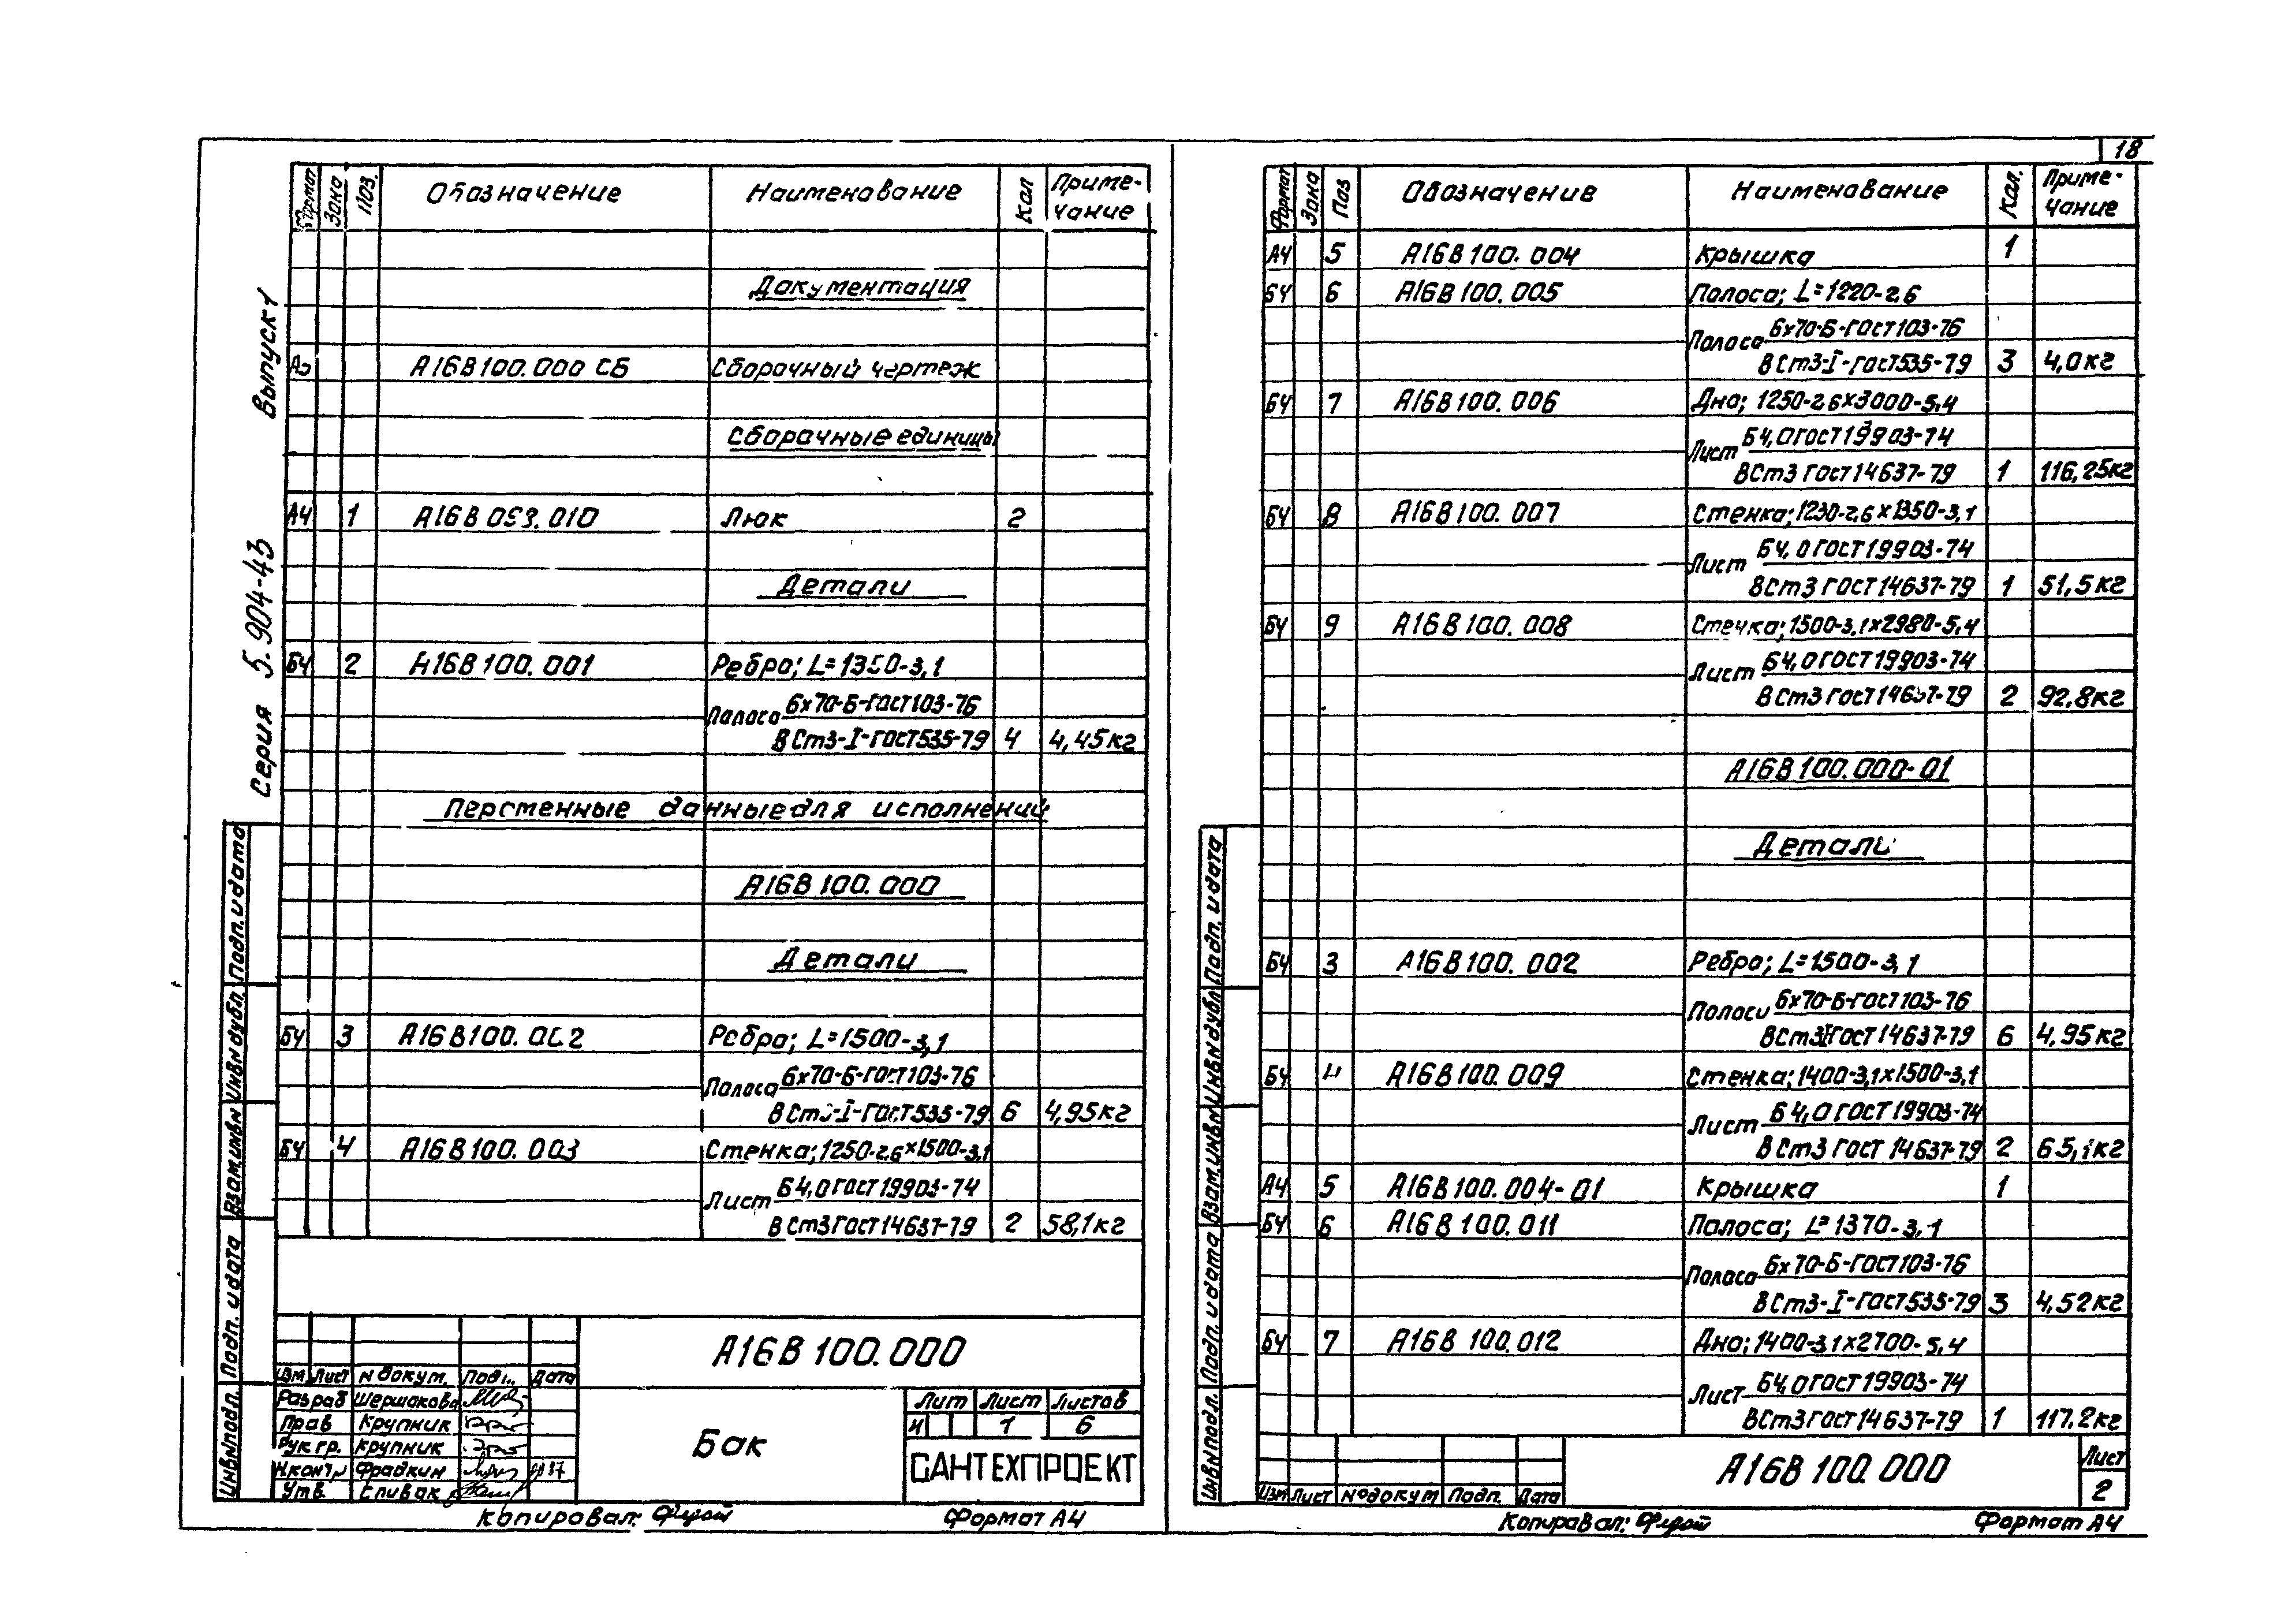 18
Серия 5.904-43 Выпуск 1
Формат Зона Поз. Обозначение Наименование Кол Приме-
чание
Документация
А3 А16В100.000 СБ Сборочный чертеж
Сборочные единицы
А4 1 А16В 099.010 Люк 2
Детали
БЧ 2 А16В 100.001 Ребро; L=1350-3,1
Полоса 6х70-Б-ГОСТ103-76
ВСт3-I-ГОСТ535-79 4 4,45кг
Переменные данные для исполнений
А16В 100.000
Детали
БЧ 3 А16В100.002 Ребро; L=1500-3,1
Полоса 6х70-Б-ГОСТ103-76
ВСт3-I-ГОСТ535-79 6 4,95кг
БЧ 4 А16В100.003 Стенка; 1250-2,6х1500-3,1
Лист Б4,0 ГОСТ19903-74
ВСт3 ГОСТ14637-79 2 58,1кг
А16В 100.000
Изм Лист N докум. Подп. Дата
Разраб Шершакова
Пров Крупник
Рук гр. Крупник
Н.контр Фрадкин
Утв. Спивак
Бак
Лит Лист Листов
И 1 6
САНТЕХПРОЕКТ
Инв N подл. Подп. и дата Взам. инв N Инв N дубл. Подп. и дата
Копировал: Формат А4
Формат Зона Поз Обозначение Наименование Кол. Приме-
чание
А4 5 А16В 100.004 Крышка 1
БЧ 6 А16В 100.005 Полоса; L=1220-2,6
Полоса 6х70-Б-ГОСТ103-76
ВСт3-I-ГОСТ535-79 3 4,0кг
БЧ 7 А16В 100.006 Дно; 1250-2,6х3000-5,4
Лист Б4,0 ГОСТ19903-74
ВСт3 ГОСТ14637-79 1 116,25кг
БЧ 8 А16В100.007 Стенка; 1230-2,6х1350-3,1
Лист Б4,0 ГОСТ19903-74
ВСт3 ГОСТ14637-79 1 51,5кг
БЧ 9 А16В 100.008 Стенка; 1500-3,1х2980-5,4
Лист Б4,0 ГОСТ19903-74
ВСт3 ГОСТ14637-79 2 92,8кг
А16В 100.000-01
Детали
БЧ 3 А16В100.002 Ребро; L=1500-3,1
Полоса 6х70-Б-ГОСТ103-76
ВСт3 I ГОСТ14637-79 6 4,95кг
БЧ 4 А16В100.009 Стенка; 1400-3,1х1500-3,1
Лист Б4,0 ГОСТ19903-74
ВСт3 ГОСТ 14637-79 2 65,1кг
А4 5 А16В100.004-01 Крышка 1
БЧ 6 А16В 100.011 Полоса; L=1370-3,1
Полоса 6х70-Б-ГОСТ103-76
ВСт3-I-ГОСТ535-79 3 4,52кг
БЧ 7 А16В 100.012 Дно; 1400-3,1х2700-5,4
Лист Б4,0 ГОСТ19903-74
ВСт3 ГОСТ14637-79 1 117.2кг
Изм Лист N докум Подп. Дата
А16В 100.000
Лист
2
Инв N подл. Подп. и дата Взам. инв N Инв N дубл Подп. и дата
Копировал: Формат А4